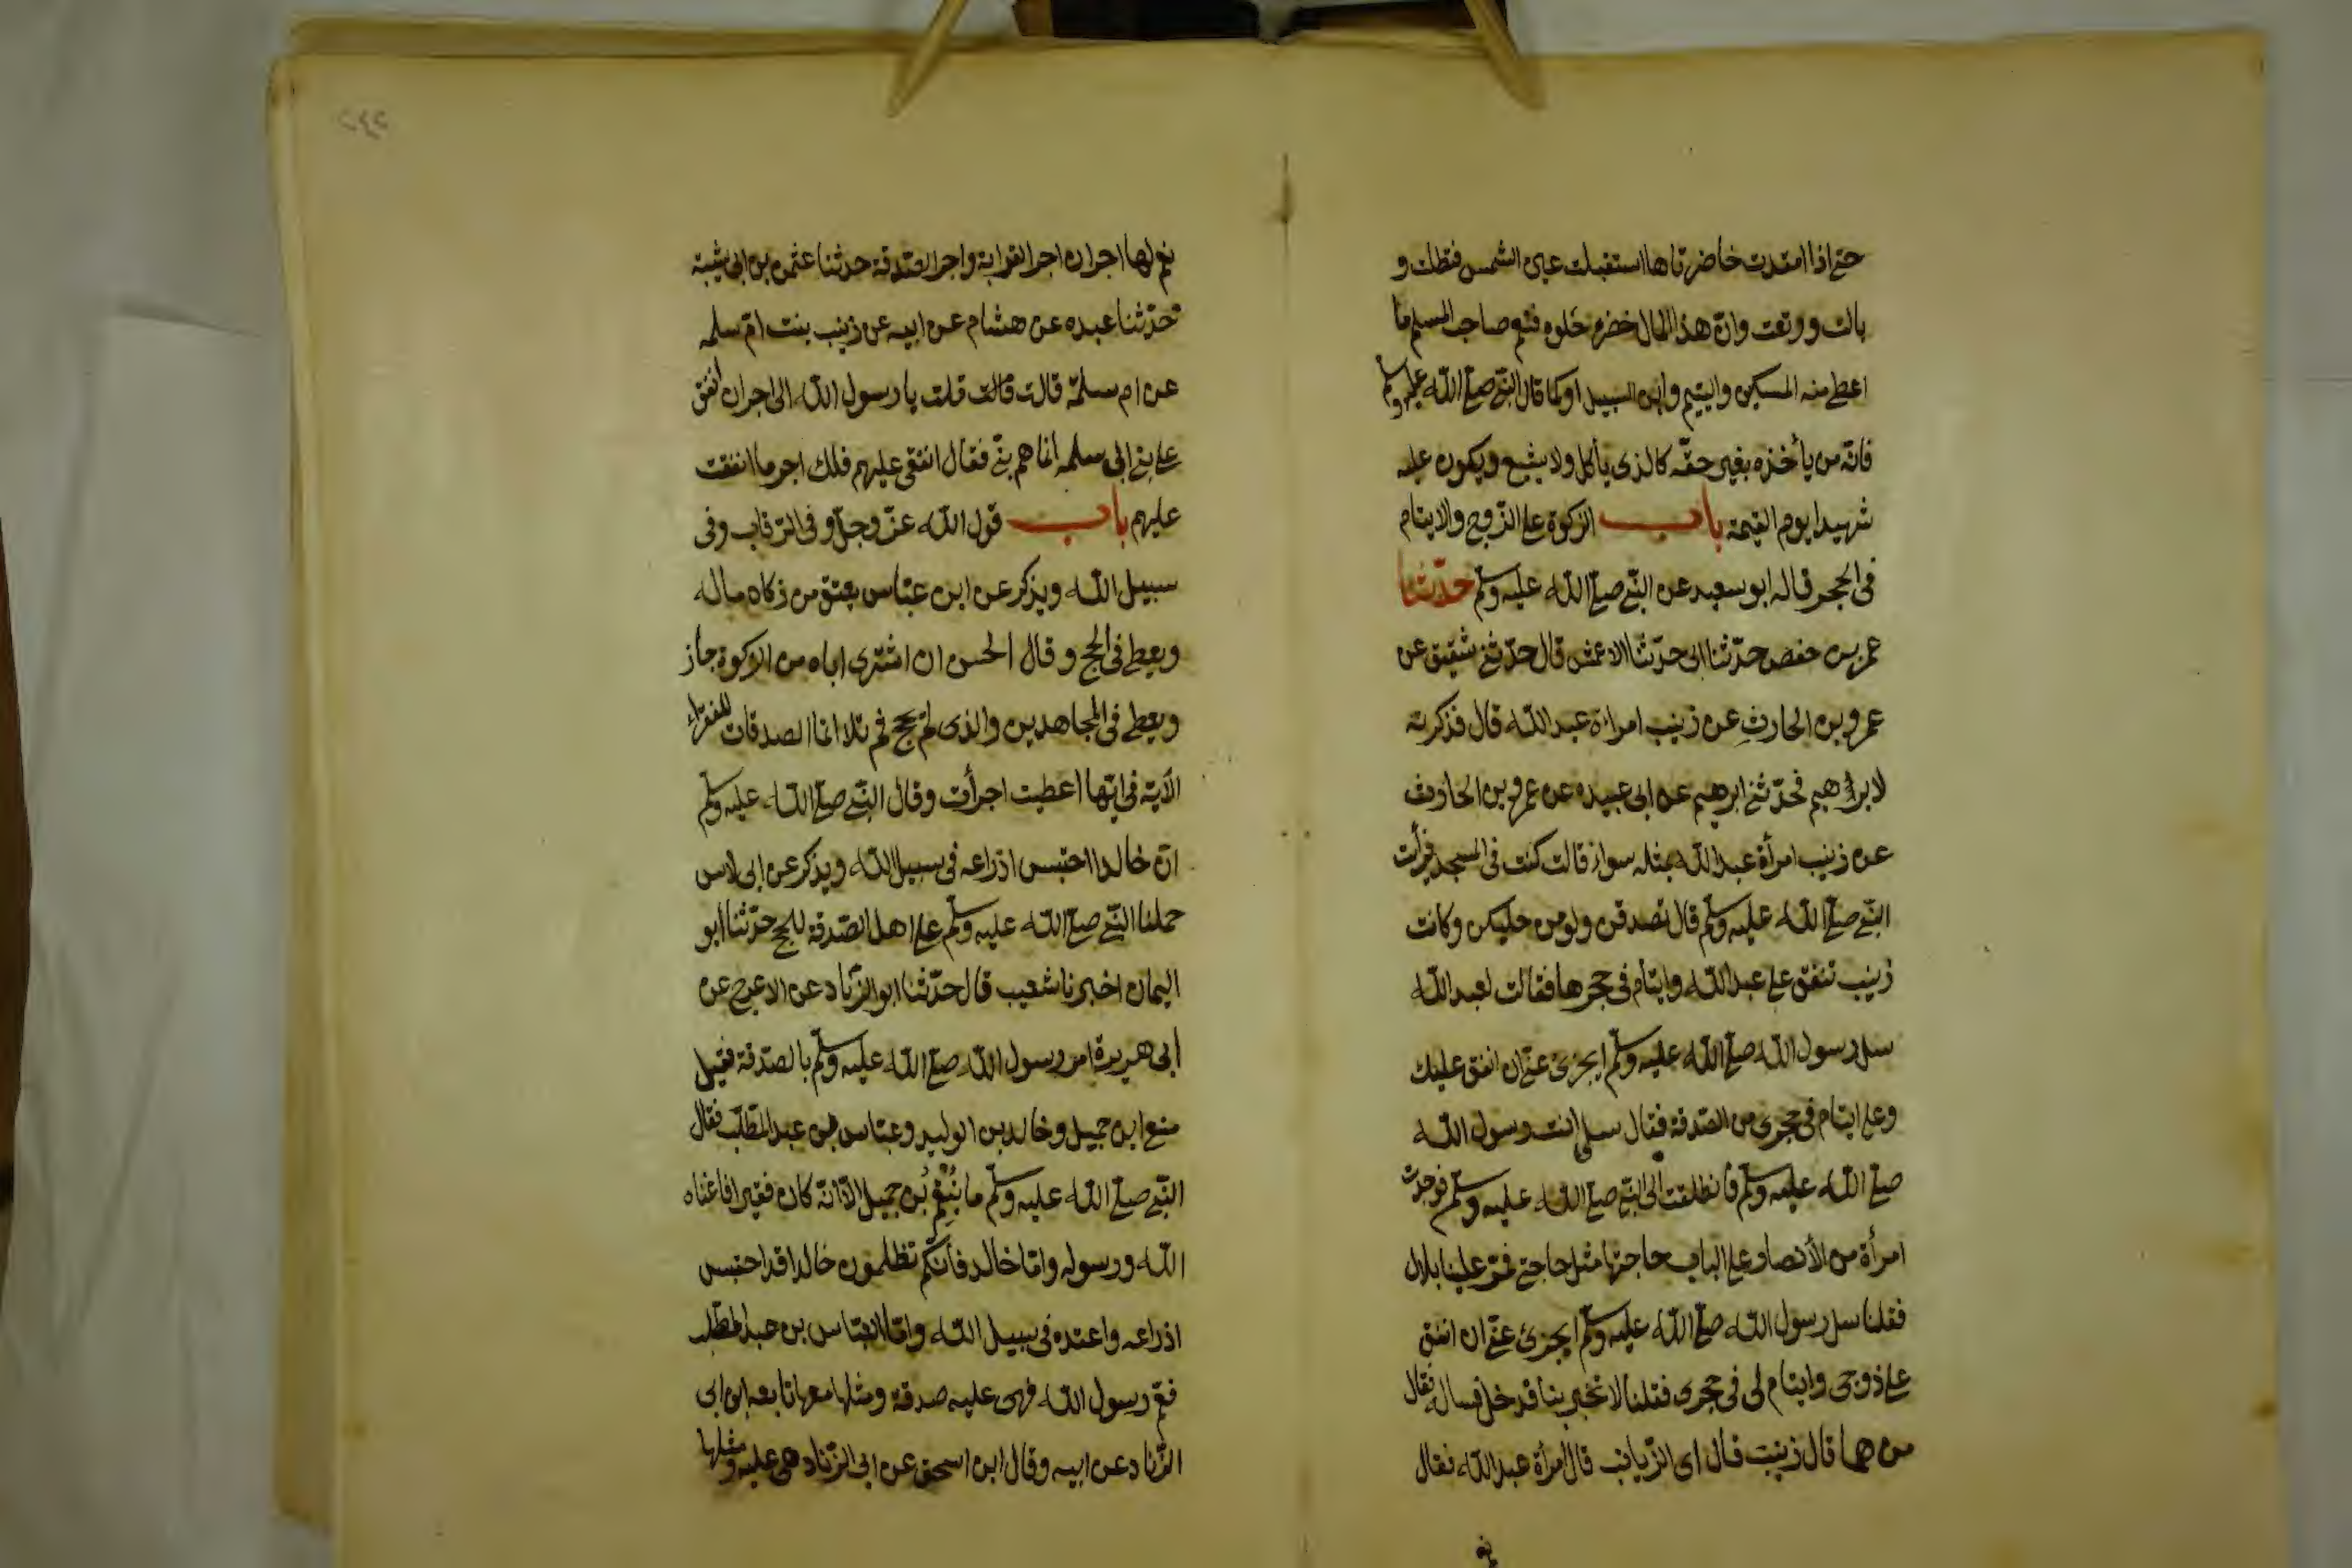 حتى اذا امتدت خاضرتاها استقبلت عين الشمس فثلطت و
بالت وورتعت وانّ هذا المال خضرة حلوة فنعم صاحب المسلم ما
اعطى منه المسكين واليتيم وابن السبيل او كما قال النبّى صلى اللّه عليه وسلّم
فانّه من يأخذه بغير حقّه كالذى يأكل ولا يشبع ويكون عليه
شهيدا يوم القيمة باب الزكوة على الزّوج والايتام
فى الحجر قاله ابو سعيد عن النبّى صلى اللّه عليه وسلّم حدّثنا
عمر بن حفص حدّثنا ابى حدّثنا الاعمش قال حدّثنى شقيق عن
عمرو بن الحارث عن زينب امراءة عبد اللّه قال فذكرته
لابراهيم فحدّثنى ابرهيم عن ابى عبيده عن عمرو بن الحارث
عن زينب امرأة عبد اللّه بمثله سواء قالت كنت فى المسجد فرأيت
النبّى صلى اللّه عليه وسلّم قال تصدقن ولو من حليكن وكانت
زينب تنفق على عبد اللّه وايتام فى حجرها فقالت لعبد اللّه
سل رسول اللّه صلى اللّه عليه وسلّم ايجزئ عنّى ان انفق عليك
وعلى ايتام فى حجرى من الصّدقة فقال سلى انت رسول اللّه
صلى اللّه عليه وسلّم فانطلقت الى النبّى صلى اللّه عليه وسلّم فوجدت
امرأة من الأنصار على الباب حاجتها مثل حاجتى فمرّ علينا بلال
فقلنا سل رسول اللّه صلى اللّه عليه وسلّم ايجزئ عنّى ان انفق
على زوجى وايتام لى فى حجرى فقلنا لا تخبر بنا فدخل فسأله فقال
من هما قال زينب قال اى الزّيانب قال امرأة عبد اللّه فقال
نعم
٢٤٢
نعم لها اجران اجر القرابة واجر الصّدقة حدثنا عثمن بن ابى شيبة
حدّثنا عبده عن هشام عن ابيه عن زينب بنت امّ سلمه
عن ام سلمة قالت قالت قلت يا رسول اللّه الى اجر ان انفق
على بنى ابى سلمه انما هم بنىّ فقال انفقى عليهم فلك اجر ما انفقت
عليهم باب قول اللّه عزّ وجلّ و فى الرّقاب وفى
سبيل اللّه ويذكر عن ابن عبّاس يعتق من زكاه ماله
ويعطى فى الحج وقال الحسن ان اشترى اباه من الزكوة جاز
ويعطى فى المجاهدين والذى لم يحج ثم تلا انما الصدقات للفقراء
الآية فى ايّها اعطيت اجرأت وقال النبّى صلى اللّه عليه وسلّم
انّ خالدا احتبس ادراعه فى سبيل اللّه ويذكر عن ابى لاس
حملنا النبّى صلى اللّه عليه وسلّم على اهل الصّدقة للحج حدّثنا أبو
اليمان اخبرنا شعيب قال حدّثنا ابو الزّناد عن الاعرج عن
ابى هريرة امر رسول اللّه صلى اللّه عليه وسلّم بالصّدقة فقيل
منع ابن جميل وخالد بن الوليد وعبّاس بن عبد المطّلب فقال
النبّى صلى اللّه عليه وسلّم ما ينقم بن جميل الّا انّه كان فقيرا فاغناه
اللّه ورسوله وامّا خالد فأنّكم تظلمون خالدا قد احتبس
ادراعه واعتده فى سبيل اللّه وامّا العبّاس بن عبد المطّلب
فعمّ رسول اللّه فهى عليه صدقة ومثلها معها تابعه ابن ابى
الزّناد عن ابيه وقال ابن اسحق عن ابى الزّناد هى عليه ومثلها